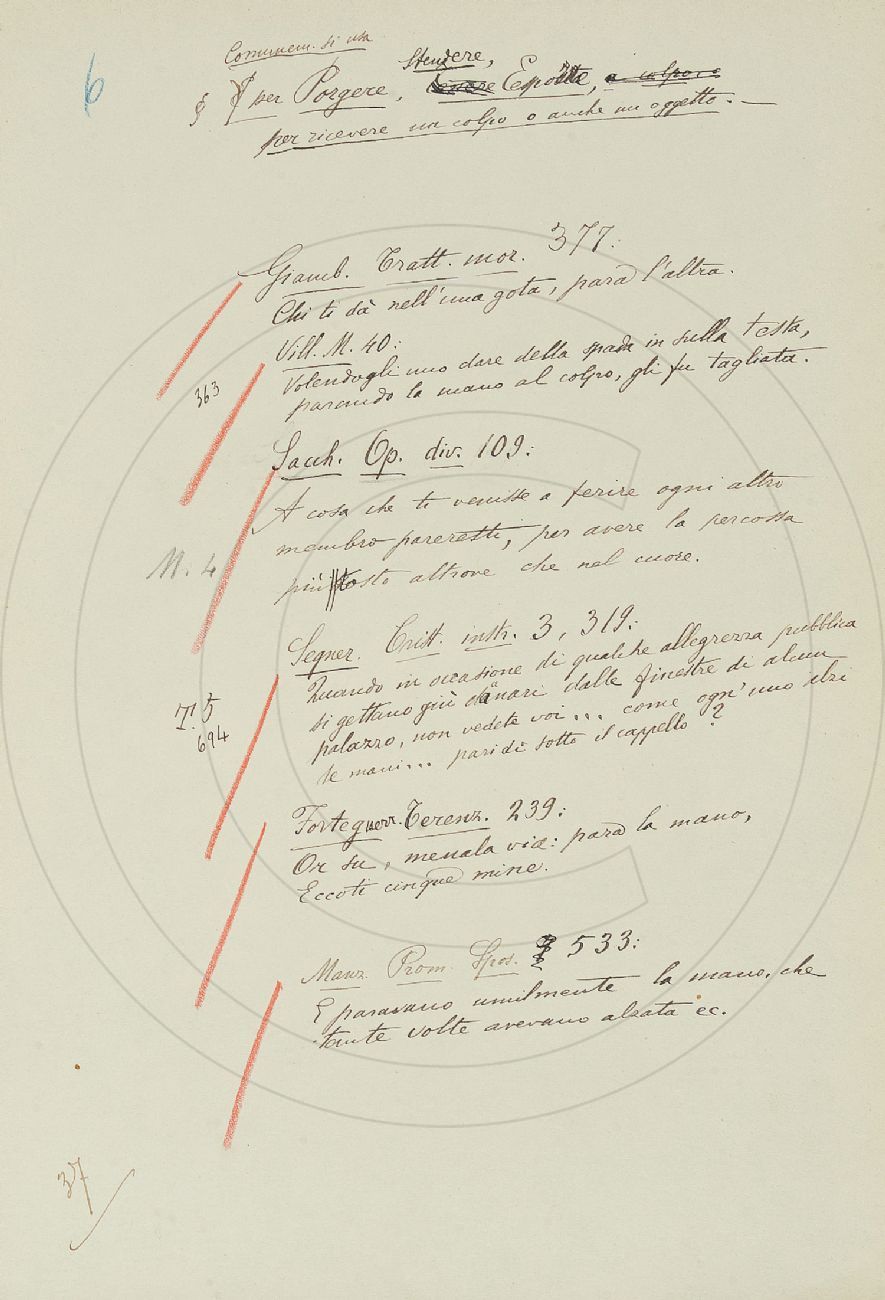 6
Comunem. si usa
§ § per Porgere, Stendere,
per ricevere un colpo o anche un oggetto. —
Giamb. Tratt. mor. 377:
Chi ti dà nell'una gota, para l'altra.
Vill. M. 40:
363
Volendogli uno dare della spada in sulla testa,
parando la mano al colpo, gli fu tagliata.
Sacch. Op. div. 109:
A cosa che ti venisse a ferire ogni altro
membro pareresti, per avere la percossa
M. 4
più tosto altrove che nel cuore.
Segner. Crist. instr. 3, 319:
Quando in occasione di qualche allegrezza pubblica
T. 5
si gettano giù danari dalle finestre di alcun
694
palazzo, non vedete voi... come ogn'uno alzi
le mani... pari di sotto il cappello?
Forteguerr. Terenz. 239:
Or su, menala via: para la mano,
Eccoti cinque mine.
Manz. Prom. Spos. 533:
E paravano umilmente la mano, che
tante volte avevano alzata ec.
37